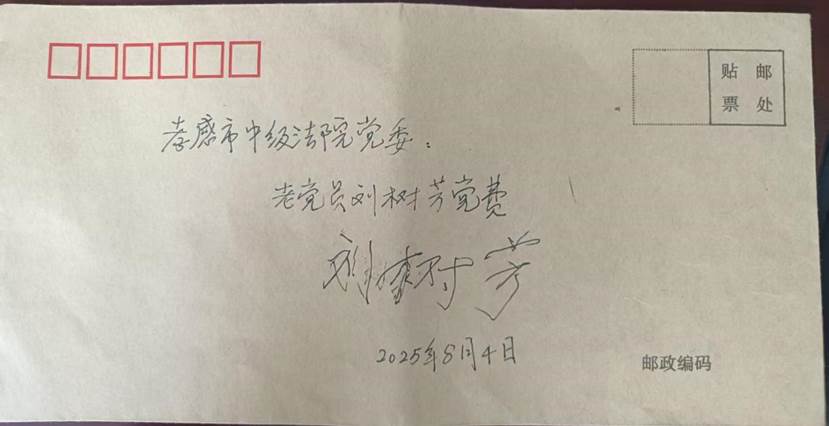 贴 邮
票 处
孝感市中级法院党委：
老党员刘树芳党费
刘树芳
2025年8月4日
邮政编码